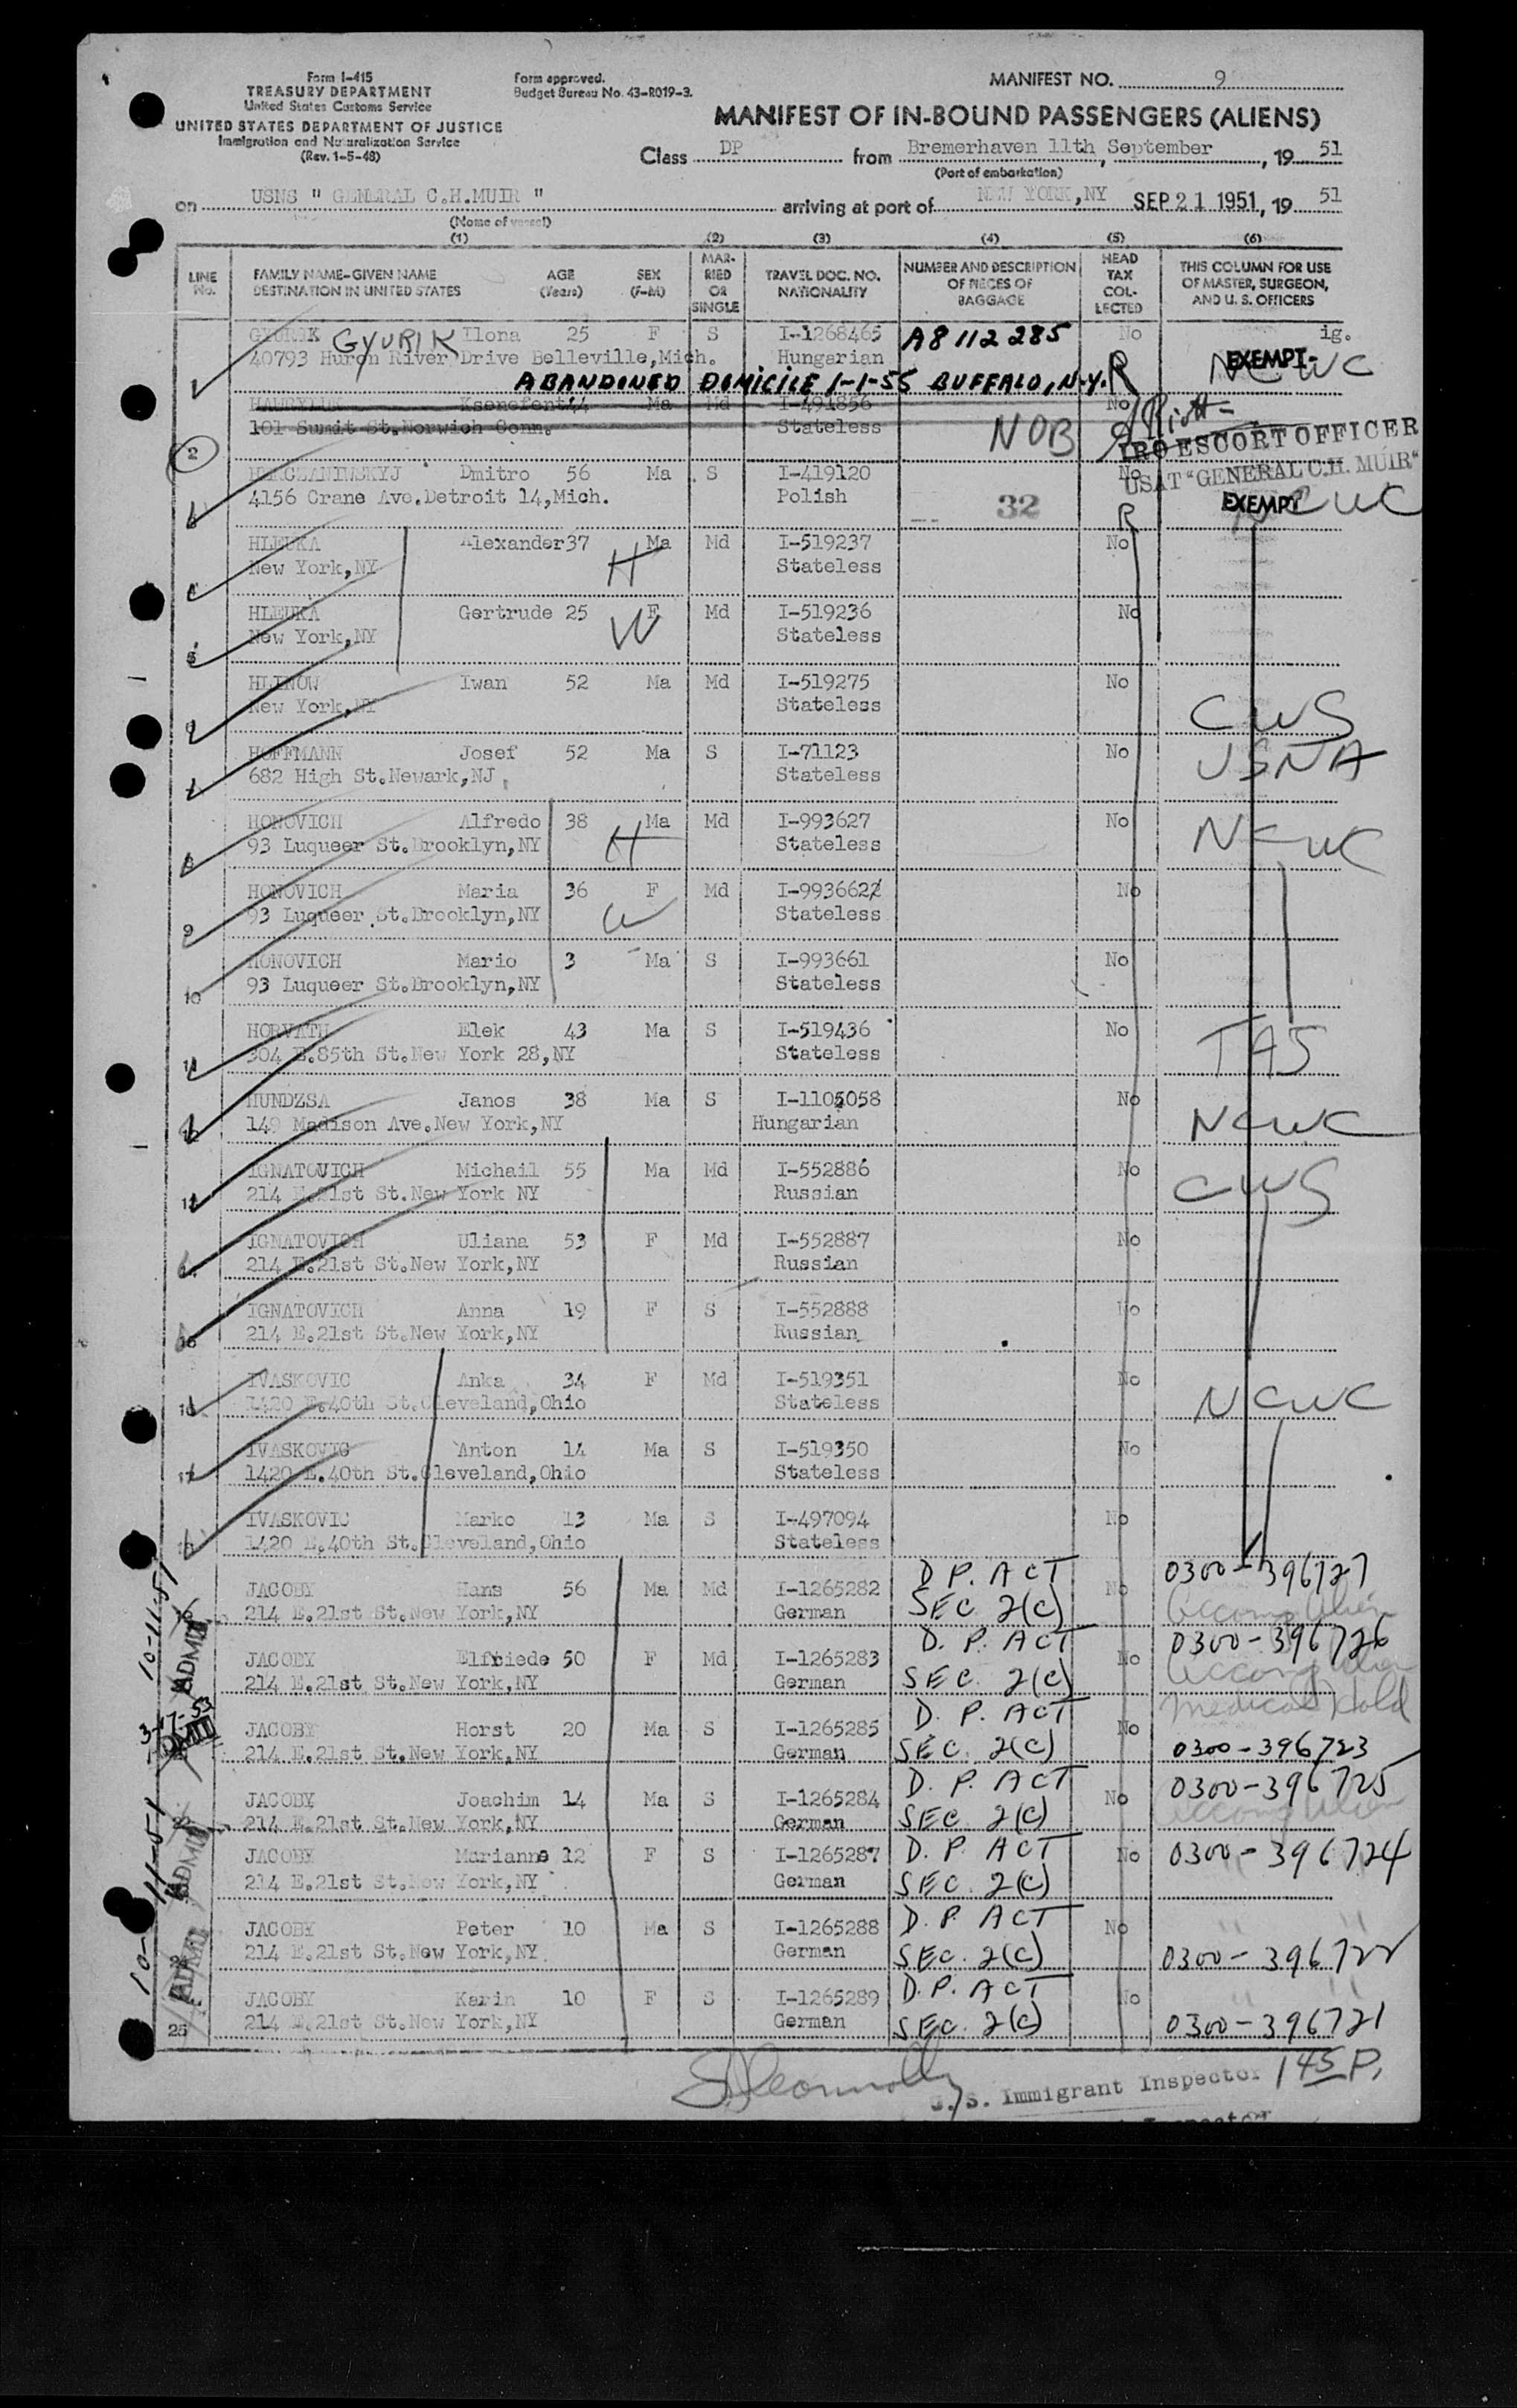 Form I-415
TREASURY DEPARTMENT
United States Customs Service
UNITED STATES DEPARTMENT OF JUSTICE
Immigration and Naturalization Service
(Rev. 1-5-48)
Form approved.
Budget Bureau No. 43-R019-3.
MANIFEST NO. 9
MANIFEST OF IN-BOUND PASSENGERS (ALIENS)
Class DP from Bremerhaven 11th, September, 19 51
(Port of embarkation)
on USNS " GENERAL C.H.MUIR " arriving at port of NEW YORK,NY SEP 21 1951, 19 51
(Name of vessel)
(1) (2) (3) (4) (5) (6)
LINE No. FAMILY NAME-GIVEN NAME DESTINATION IN UNITED STATES AGE (Years) SEX (F-M) MARRIED OR SINGLE TRAVEL DOC. NO. NATIONALITY NUMBER AND DESCRIPTION OF PIECES OF BAGGAGE HEAD TAX COLLECTED THIS COLUMN FOR USE OF MASTER, SURGEON, AND U. S. OFFICERS
GYURIK Ilona 25 F S I-1268465 A8 112 285 No ig.
40793 Huron River Drive Belleville,Mich. Hungarian R EXEMPT NCWC
ABANDONED DOMICILE 1-1-55 BUFFALO, N.Y.
Ksenofont 44 Ma Md I-491856 No
101 Sumit St.Norwich Conn. Stateless NOB
2 IRO ESCORT OFFICER
Dmitro 56 Ma S I-419120 No USAT "GENERAL C.H. MUIR"
4156 Crane Ave.Detroit 14,Mich. Polish 32 R EXEMPT NCWC
HLEUKA Alexander 37 Ma Md I-519237 No
New York,NY H Stateless
HLEUKA Gertrude 25 F Md I-519236 No
New York,NY W Stateless
5
HLINOW Iwan 52 Ma Md I-519275 No
New York,NY Stateless CWS
HOFFMANN Josef 52 Ma S I-71123 No USNA
682 High St.Newark,NJ Stateless
HONOVICH Alfredo 38 Ma Md I-993627 No
93 Luqueer St.Brooklyn,NY H Stateless NCWC
8
HONOVICH Maria 36 F Md I-993662 No
93 Luqueer St.Brooklyn,NY W Stateless
9
HONOVICH Mario 3 Ma S I-993661 No
93 Luqueer St.Brooklyn,NY Stateless
10
HORVATH Elek 43 Ma S I-519436 No
304 E.85th St.New York 28,NY Stateless TAS
11
HUNDZSA Janos 38 Ma S I-1105058 No
149 Madison Ave.New York,NY Hungarian NCWC
12
IGNATOVICH Michail 55 Ma Md I-552886 No
214 E.21st St.New York NY Russian CWS
IGNATOVICH Uliana 53 F Md I-552887 No
214 E.21st St.New York,NY Russian
IGNATOVICH Anna 19 F S I-552888 No
214 E.21st St.New York,NY Russian
IVASKOVIC Anka 34 F Md I-519351 No
1420 E.40th St.Cleveland,Ohio Stateless NCWC
16
IVASKOVIC Anton 14 Ma S I-519350 No
1420 E.40th St.Cleveland,Ohio Stateless
17
IVASKOVIC Marko 13 Ma S I-497094 No
1420 E.40th St.Cleveland,Ohio Stateless
JACOBY Hans 56 Ma Md I-1265282 D. P. ACT No 0300-396727
214 E.21st St.New York,NY German SEC. 2(C) Accomp Alien
10-11-51 ADMIT
JACOBY Elfriede 50 F Md I-1265283 D. P. ACT No 0300-396726
214 E.21st St.New York,NY German SEC. 2(C) Accomp Alien
3-17-53
JACOBY Horst 20 Ma S I-1265285 D. P. ACT No Medical Hold
214 E.21st St.New York,NY German SEC. 2(C) 0300-396723
JACOBY Joachim 14 Ma S I-1265284 D. P. ACT No 0300-396725
214 E.21st St.New York,NY German SEC. 2(C) Accomp Alien
JACOBY Marianne 12 F S I-1265287 D. P. ACT No 0300-396724
214 E.21st St.New York,NY German SEC. 2(C)
10-11-51 ADMIT
JACOBY Peter 10 Ma S I-1265288 D. P. ACT No " "
214 E.21st St.New York,NY German SEC. 2(C) 0300-396722
JACOBY Karin 10 F S I-1265289 D.P. ACT No " "
214 E.21st St.New York,NY German SEC. 2(C) 0300-396721
25
U. S. Immigrant Inspector 145 P.